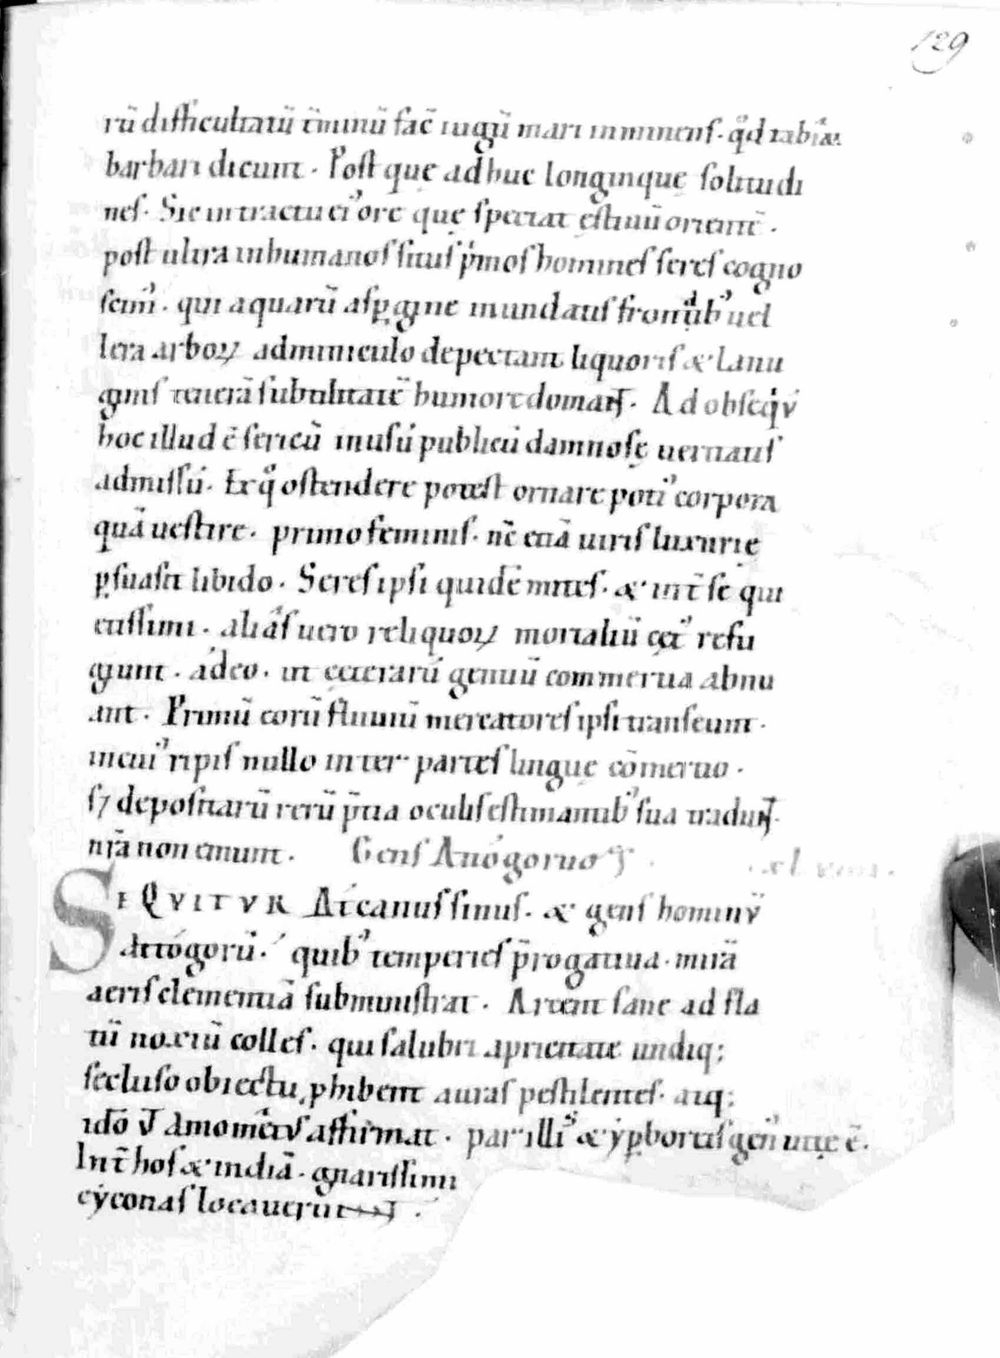 129
rū difficultatū t̄minū fac̄ iugū mari inminens. qd̊ tabiꝫ
barbari dicunt. Post quę adhuc longinquę solitudi
nes. Sic in tractu ei᾿ orę quę spectat ęstiuū orientē.
post ultra inhumanos situs p̍mos homines seres cogno
scim᾿. qui aquarū aspꝑgine inundatis frondib᾿ uel
lera arboꝝ adminiculo depectunt liquoris & lanu
ginis tenerā subtilitatē humore domant. Ad obseq̍ū
hoc illud ē sericū in usū publicū damnosę ueritatis
admissū. Ex q̊ ostendere potest ornare poti᾿ corpora
quā uestire. primo feminis. nc̄ etiā uiris luxurię
ꝑsuasit libido. Seres ipsi quidē mites. & int̄ se qui
etissimi. aliās uero reliquoꝝ mortaliū cęt᾿ refu
giunt. adeo. ut cęterarū gentiū commertia abnu
ant. Primū eorū fluuiū mercatores ipsi transeunt.
in cui᾿ ripis nullo inter partes linguę cōmertio.
sꝫ depositarū rerū p̄tia oculis estimantib᾿ sua tradunt.
nr̄a non emunt. Gens Attogoruꝫ
SEQVITVR Attcanus sinus. & gens hominū
Attogorū. quib᾿ temperies p̄rogatiua. mirā
aeris clementiā subministrat. Arcent sane ad fla
tū noxiū colles. qui salubri apricitate undiq;
secluso obiectu ꝓhibent auras pestilentes. atq;
idō ut Amometus affirmat. par illi᾿ & yꝑboreis gen᾿ uitę ē.
Int̄ hos & indiā. gnarissimi
cyconas locauerunt.